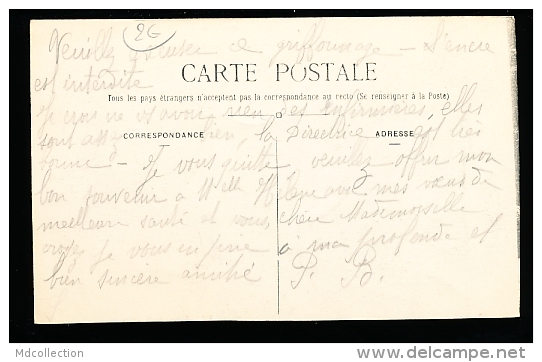 26
Veuillez excuser ce griffonnage – L'encre
est interdite
CARTE POSTALE
Tous les pays étrangers n'acceptent pas la correspondance au recto (Se renseigner à la Poste)
Je crois ne vs avoir rien des Infirmières, elles
sont assez bien, la Directrice est très
CORRESPONDANCE
ADRESSE
bonne – Je vous quitte veuillez offrir mon
bon souvenir à Melle Hélène avec mes vœux de
meilleure santé et vous, chère Mademoiselle
croyez je vous en prie à ma profonde et
bien sincère amitié P. B.
Mdcollection
www.delcampe.net